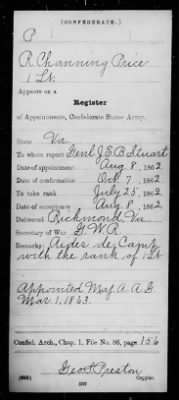 (CONFEDERATE.)
P
R Channing Price
1 Lt.
Appears on a
Register
of Appointments, Confederate States Army.
State Va
To whom report Genl J.E.B Stuart
Date of appointment Aug 8, 1862
Date of confirmation Oct 7, 1862
To take rank July 25, 1862
Date of acceptance Aug 8, 1862
Delivered Richmond Va
Secretary of War G.W.R
Remarks: Aydes de Camp
with the rank of 1 Lt
Appointed Maj A A G.
Mar 1, 1863.
Confed. Arch., Chap. 1, File No. 86, page 156
Geo. H. Preston
Copyist.